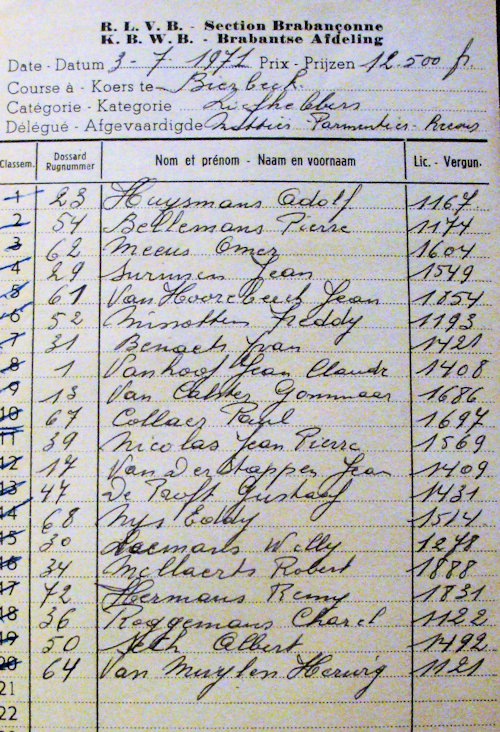 R. L. V. B. - Section Brabançonne
K. B. W. B. - Brabantse Afdeling
Date - Datum 3-7-1971 Prix - Prijzen 12.500 fr.
Course à - Koers te Bierbeek
Catégorie - Kategorie Liefhebbers
Délégué - Afgevaardigde Parmentier
Classem. Dossard Rugnummer Nom et prénom - Naam en voornaam Lic. - Vergun.
1 23 Huysmans Adolf 1167
2 54 Bellemans Pierre 1174
3 62 Meeus Omer 1604
4 29 Jean 1549
5 61 Van Hoorebeeck Jean 1854
6 52 Freddy 1193
7 31 Benaets Ivan 1421
8 1 Vanhoof Jean Claude 1408
9 13 Van Calster Gommaar 1686
10 67 Collaer Paul 1697
11 39 Nicolas Jean Pierre 1569
12 17 Van Der Stappen Jean 1409
13 47 De Proft Gustaaf 1431
14 68 Nys Eddy 1514
15 30 Willy 1278
16 34 Mellaerts Robert 1888
17 72 Hermans Remy 1831
18 36 Roggemans Charel 1122
19 50 Albert 1492
20 64 Van Muylen Herwig 1121
21
22